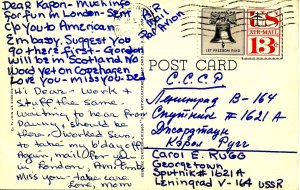 Dear Karon- Much info
for fun in London- Sent
c/o you to American
Embassy. Suggest you
go there first- Gordon
will be in Scotland. No
word yet on Copenhagen
Love you- miss you- Dad
Hi Dear- Work &
stuff the same-
waiting to hear from
Danny, should be
there. I worked Sun.
to take my b'day off
Again, mail for you
in London Am. Emb.
Miss you- take care
Love, Mom
AIR
Mail
Par Avion
1ST FREEDOM RING
US
AIR MAIL
13¢
POST CARD
С.С.С.Р
Ленинград В-164
Спутник #1621 А
Джорджтаун
КэролРугг
Carol E. RUGG
Georgetown
Sputnik #1621 A
Leningrad V-164 USSR